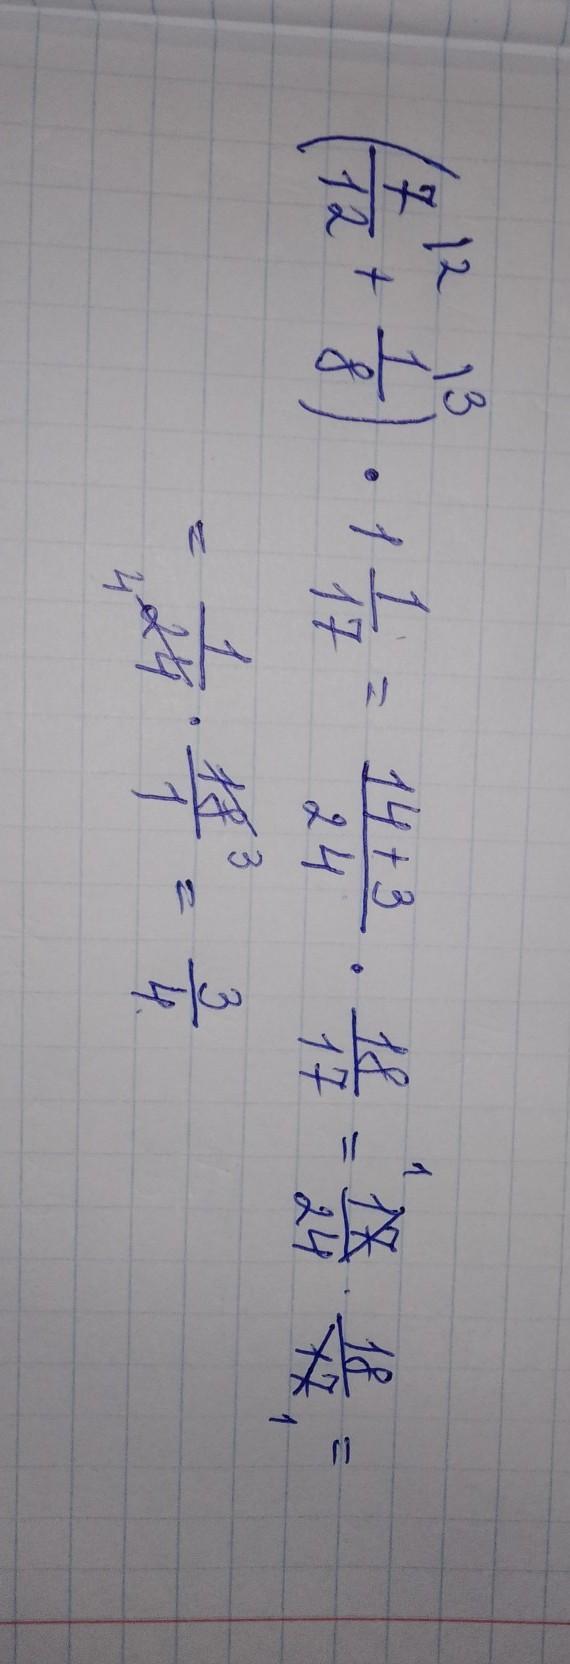 (7\2/12 + 1\3/8) · 1 1/17 = 14+3/24 · 18/17 = 17 1/24 · 18/17 1 =
= 1/24 4 · 18 3/1 = 3/4